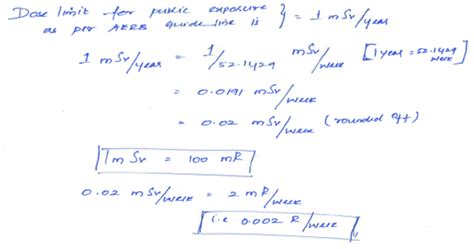 Dose limit for public exposure
as per AERB guide line is } = 1 mSv/year
1 mSv/year = 1/52.1429 mSv/week [1 year = 52.1429 week]
= 0.0191 mSv/week
= 0.02 mSv/week (rounded off)
1 mSv = 100 mR
0.02 mSv/week = 2 mR/week
i.e 0.002 R/week